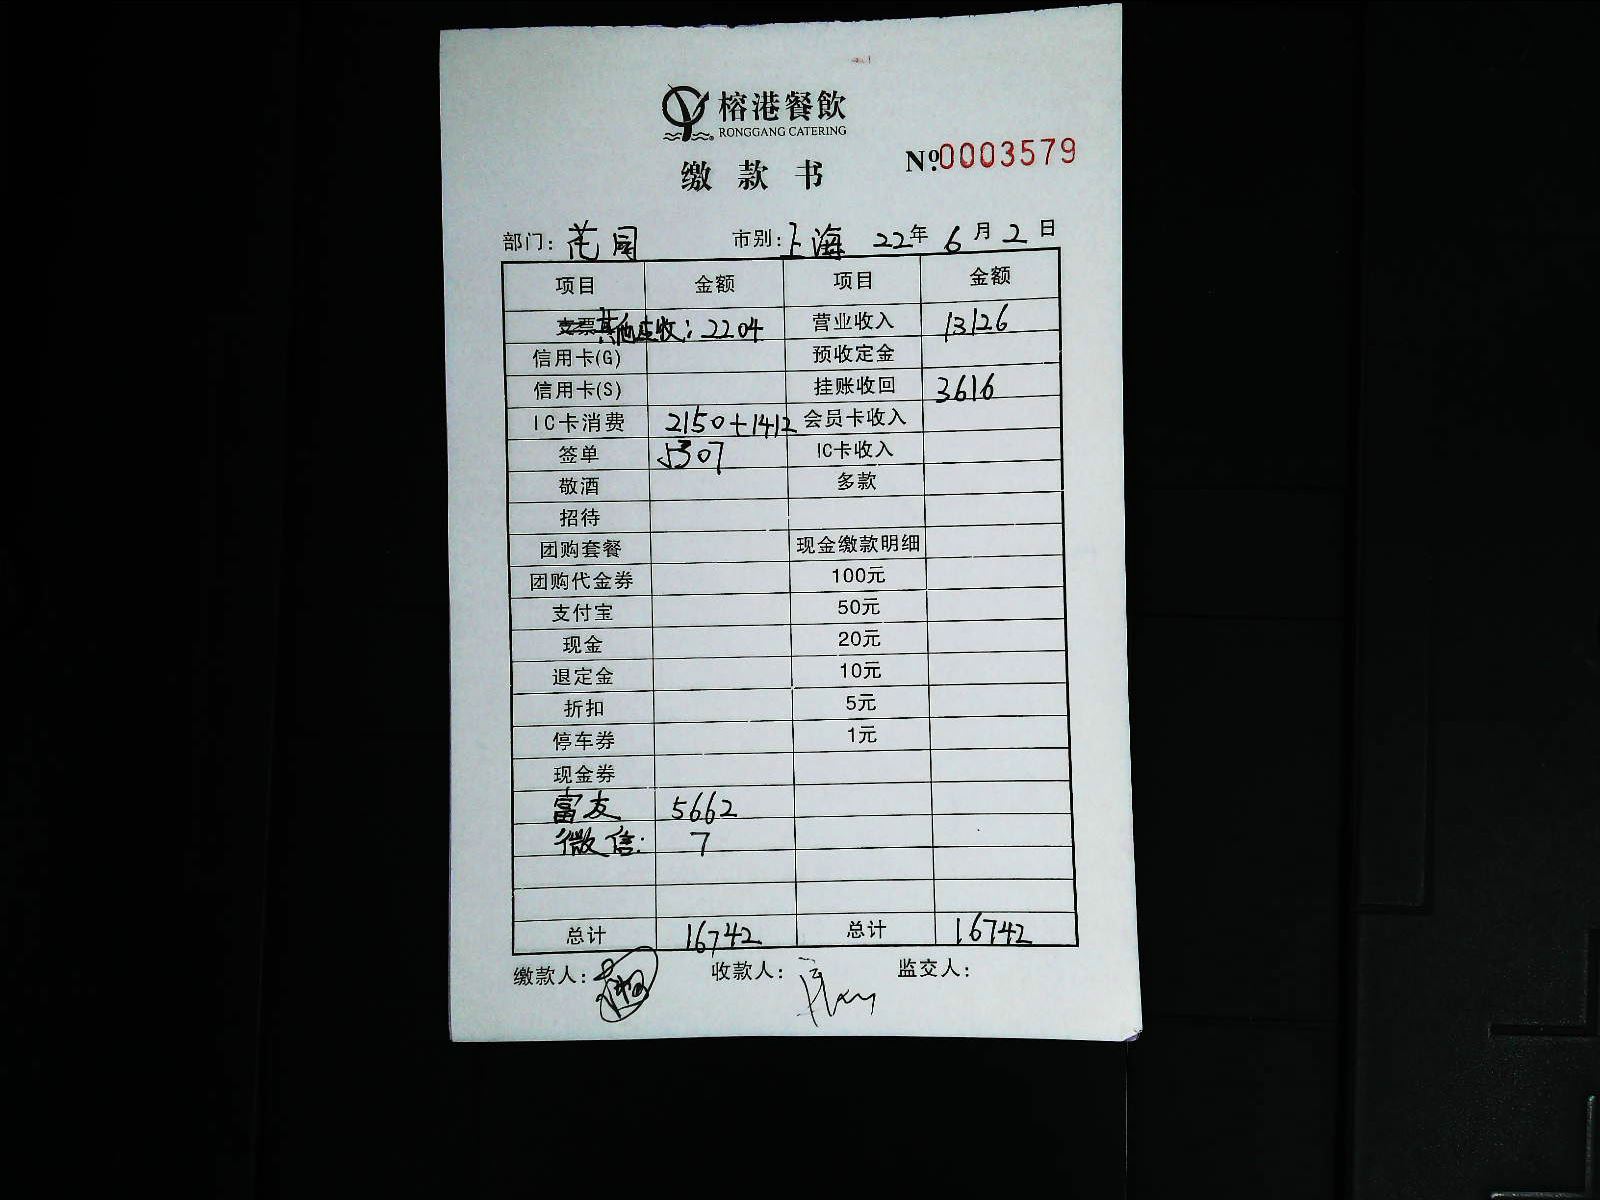 榕港餐飲
RONGGANG CATERING
缴款书 №0003579
部门: 花园 市别: 上海 22年 6月 2日
项目 金额 项目 金额
支票 其他应收: 2204 营业收入 13126
信用卡(G) 预收定金
信用卡(S) 挂账收回 3616
IC卡消费 2150+1412 会员卡收入
签单 5307 IC卡收入
敬酒 多款
招待
团购套餐 现金缴款明细
团购代金券 100元
支付宝 50元
现金 20元
退定金 10元
折扣 5元
停车券 1元
现金券
富友 5662
微信: 7
总计 16742 总计 16742
缴款人: 收款人: 监交人: